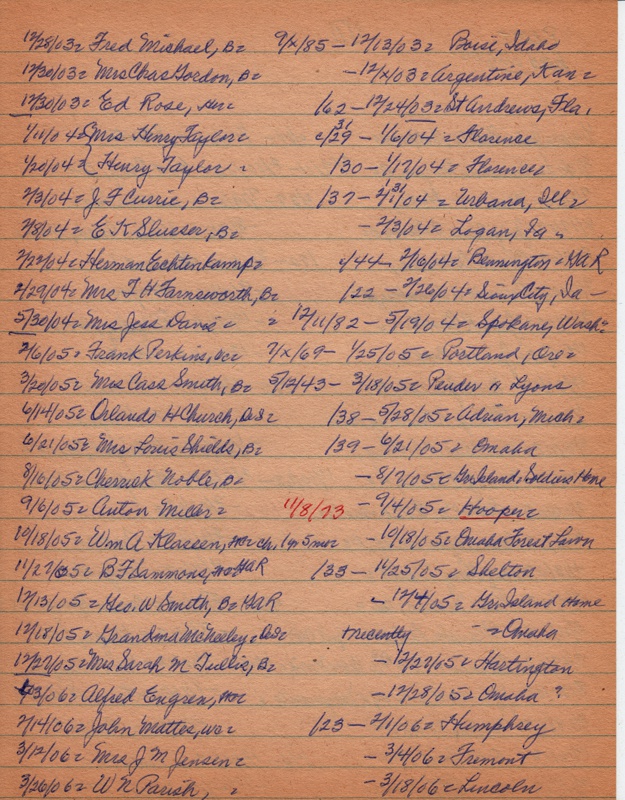 12/28/03 = Fred Michael, B= ?/x/85 - 12/13/03 = Boise, Idaho
12/30/03 = Mrs Chas Gordon, B= - 12/x/03 = Argentine, Kan =
12/30/03 = Ed Rose, /62 - 12/24/03 = St Andrews, Fla,
1/11/04 = Mrs Henry Taylor = c/29 - 1/6/04 = Florence
1/20/04 = Henry Taylor = /30 - 1/17/04 = Florence =
2/3/04 = J F Currie, B= /37 - 1/31/04 = Urbana, Ill =
2/8/04 = E K Slusser, B= - 2/3/04 = Logan, Ia =
2/22/04 = Herman Echtenkamp = c/44 - 2/16/04 = Bennington = GAR
2/29/04 = Mrs F H Farnsworth, B= /22 - 2/26/04 = Sioux City, Ia -
5/30/04 = Mrs Jess Davis = = 12/11/82 - 5/19/04 = Spokane, Wash =
2/6/05 = Frank Perkins, wc= ?/x/69 - 1/25/05 = Portland, Ore =
3/20/05 = Mrs Cass Smith, B= 5/12/43 - 3/18/05 = Pender n Lyons
6/14/05 = Orlando H Church, /38 - 5/28/05 = Adrian, Mich =
6/21/05 = Mrs Louis Shields, B= /39 - 6/21/05 = Omaha
8/16/05 = Cherrick Noble, B= - 8/7/05 = Gr Island = Soldiers Home
9/6/05 = Anton Miller = 11/8/73 - 9/4/05 = Hooper =
10/18/05 = Wm A Klassen, ch, 1 yr 5 mo = - 10/18/05 = Omaha Forest Lawn
11/27/05 = B F Sammons, GAR /33 - 11/25/05 = Shelton
12/13/05 = Geo. W Smith, B= GAR - 12/4/05 = Gr Island Home
12/18/05 = Grandma McNeeley = + recently = Omaha
12/27/05 = Mrs Sarah M Tullis, B= - 12/22/05 = Hartington
1/3/06 = Alfred Engren, - 12/28/05 = Omaha ?
2/14/06 = John Mattes, wc= /23 - 2/1/06 = Humphrey
3/12/06 = Mrs J M Jensen = - 3/4/06 = Fremont
3/26/06 = W N Parish, = - 3/18/06 = Lincoln